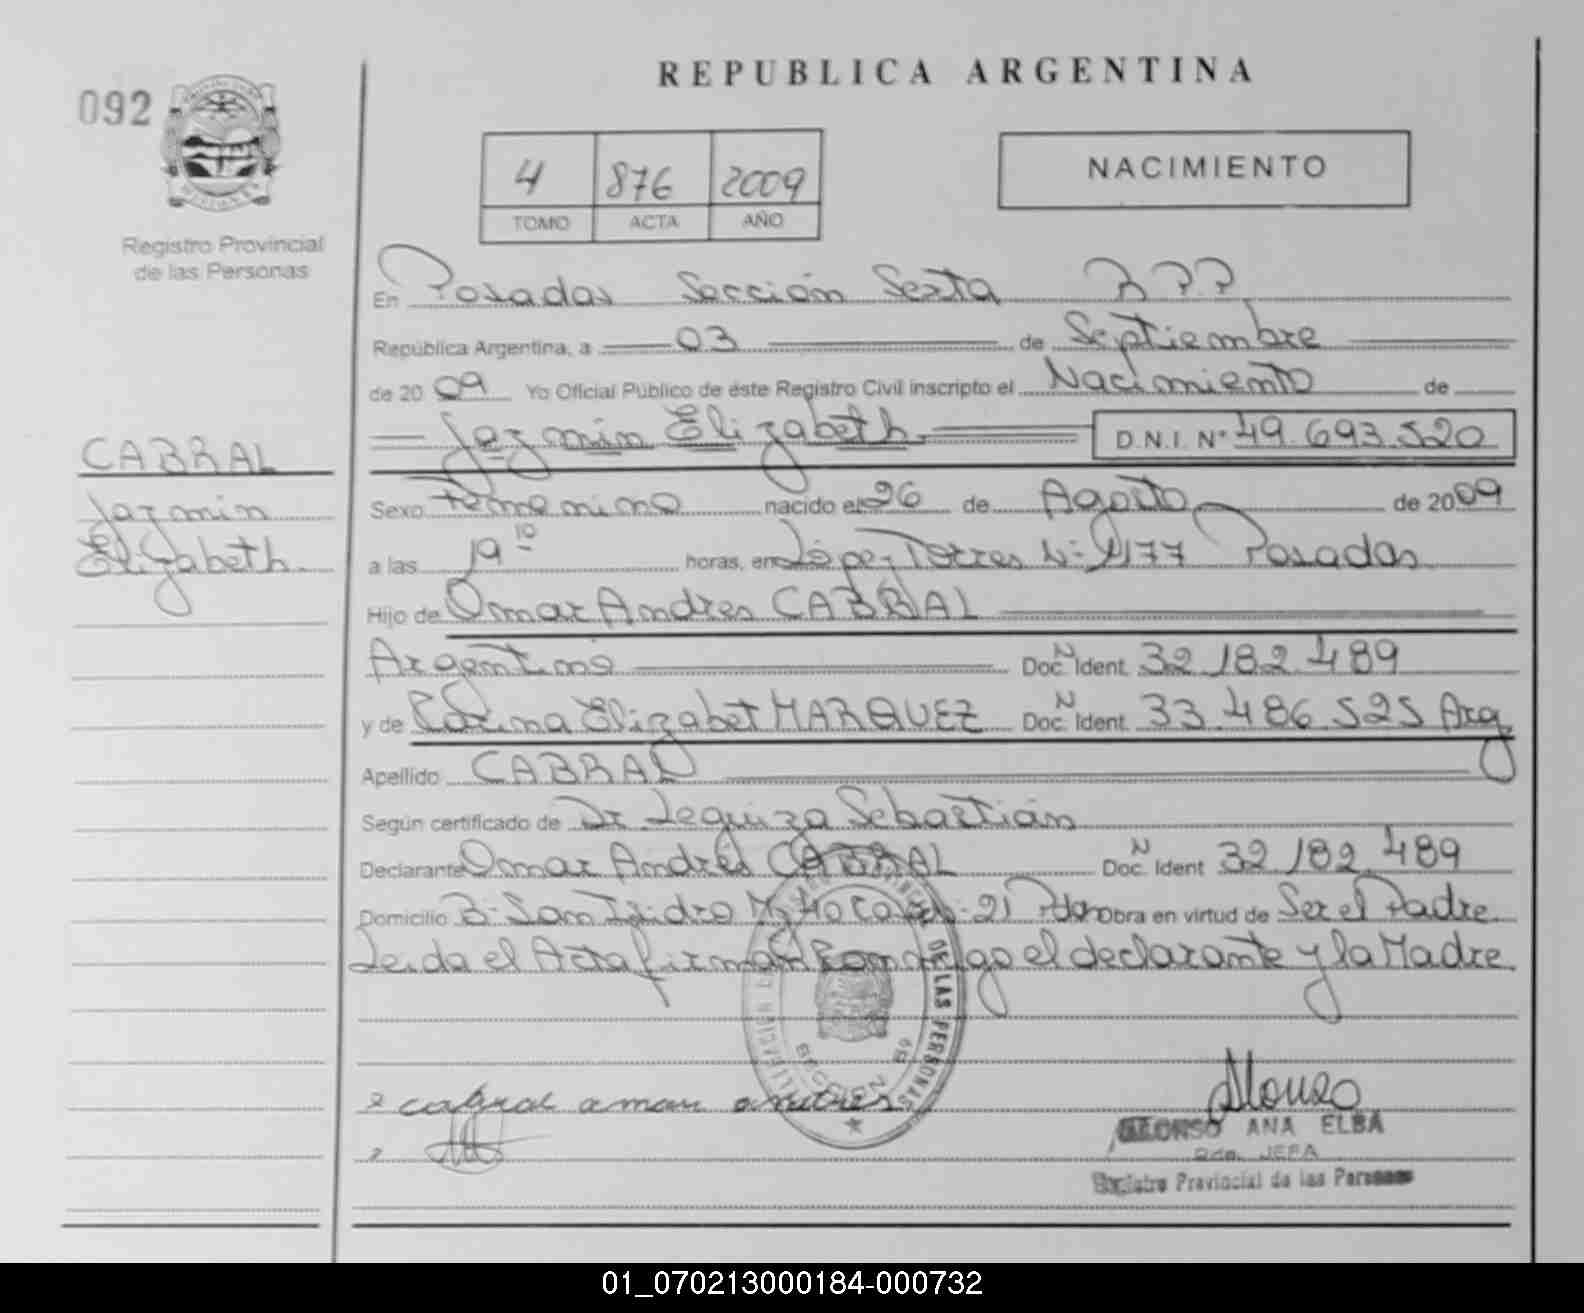 REPUBLICA ARGENTINA
092
4 876 2009
TOMO ACTA AÑO
NACIMIENTO
Registro Provincial
de las Personas
En Posadas Sección Sexta
República Argentina, a 03 de Septiembre
de 2009 Yo Oficial Público de éste Registro Civil inscripto el Nacimiento de
Jazmin Elizabeth D.N.I. Nº 49.693.520
CABRAL
Jazmin
Elizabeth
Sexo Femenino nacido el 26 de Agosto de 2009
a las 19 10 horas, en López Torres Nº 1177 Posadas
Hijo de Omar Andres CABRAL
Argentino Doc. N Ident. 32.182.489
y de Elizabet MARQUEZ Doc. N Ident. 33.486.525 Arg
Apellido CABRAL
Según certificado de Dr Leguiza Sebastián
Declarante Omar Andrés CABRAL Doc. N Ident 32.182.489
Domicilio B: San Isidro 21 Obra en virtud de Ser el Padre
Leida el Acta firman conmigo el declarante y la Madre
DE LAS PERSONAS
cabral omar andres
Alonso
ALONSO ANA ELBA
JEFA
Registro Provincial de las Personas
01_070213000184-000732